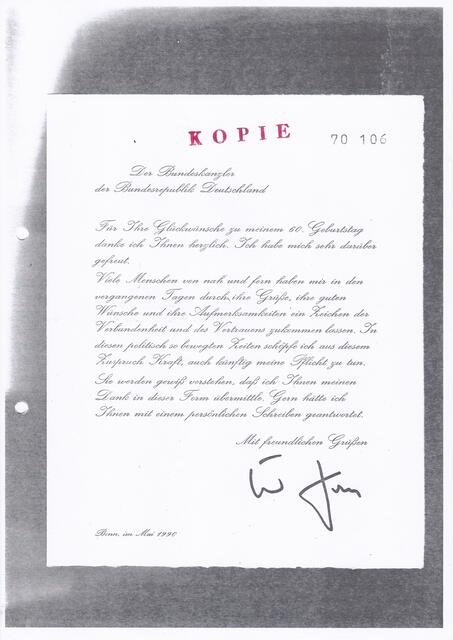 KOPIE 70 106
Der Bundeskanzler
der Bundesrepublik Deutschland
Für Ihre Glückwünsche zu meinem 60. Geburtstag
danke ich Ihnen herzlich. Ich habe mich sehr darüber
gefreut.
Viele Menschen von nah und fern haben mir in den
vergangenen Tagen durch ihre Grüße, ihre guten
Wünsche und ihre Aufmerksamkeiten ein Zeichen der
Verbundenheit und des Vertrauens zukommen lassen. In
diesen politisch so bewegten Zeiten schöpfe ich aus diesem
Zuspruch Kraft, auch künftig meine Pflicht zu tun.
Sie werden gewiß verstehen, daß ich Ihnen meinen
Dank in dieser Form übermittle. Gern hätte ich
Ihnen mit einem persönlichen Schreiben geantwortet.
Mit freundlichen Grüßen
Bonn, im Mai 1990